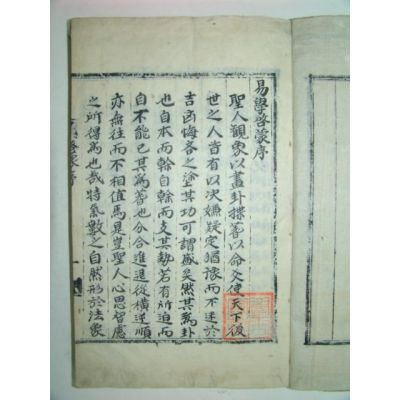 易學啓蒙序
聖人觀象以畫卦揲蓍以命爻使天下後
世之人皆有以决嫌疑定猶豫而不迷於
吉凶悔吝之塗其功可謂盛矣然其爲卦
也自本而幹自幹而支其勢若有所迫而
自不能已其爲蓍也分合進退從橫逆順
亦無往而不相值焉是豈聖人心思智慮
之所得爲也哉特氣數之自然形於法象
蒙序